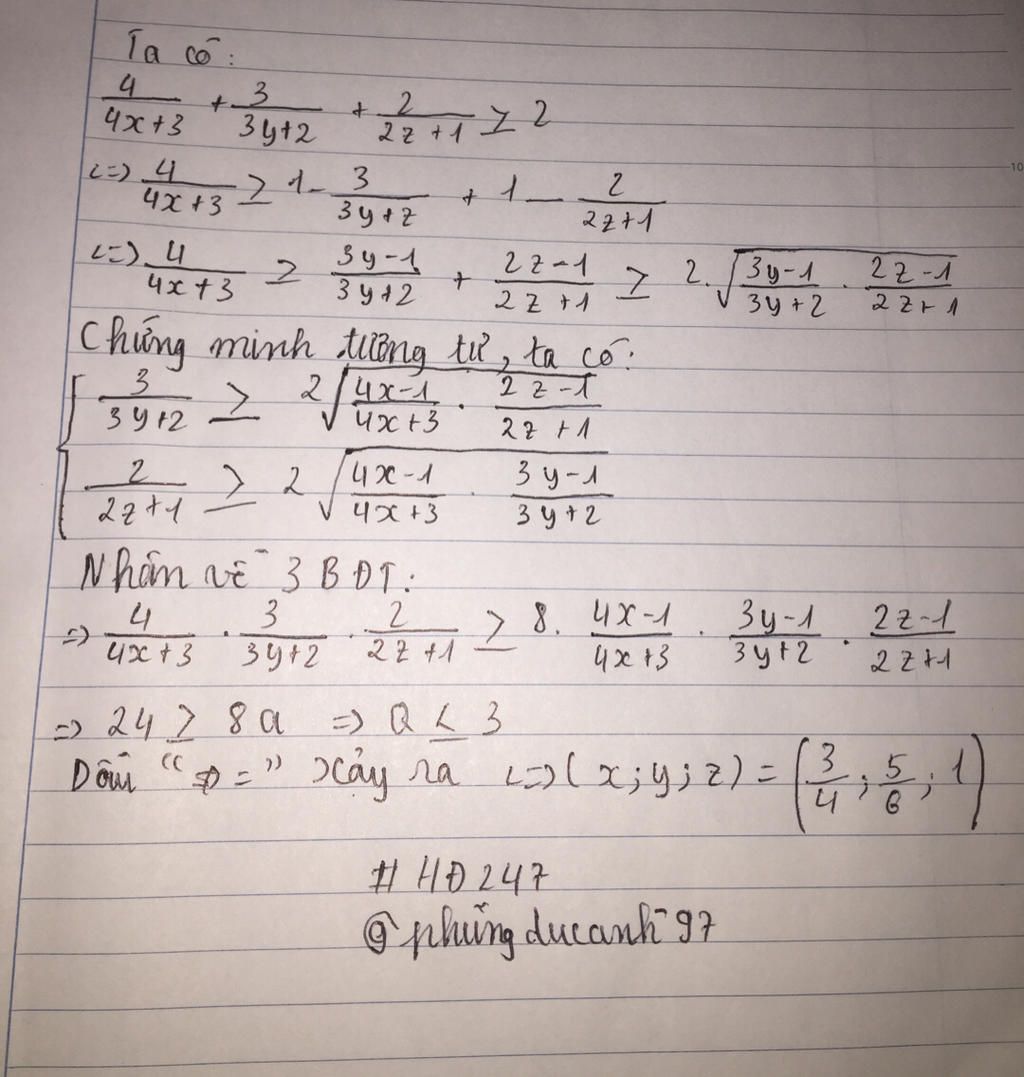 Ta có:
4/(4x+3) + 3/(3y+2) + 2/(2z+1) ≥ 2
<=> 4/(4x+3) ≥ 1 - 3/(3y+z) + 1 - 2/(2z+1)
<=> 4/(4x+3) ≥ (3y-1)/(3y+2) + (2z-1)/(2z+1) ≥ 2.√((3y-1)/(3y+2) . (2z-1)/(2z+1))
Chứng minh tương tự, ta có:
3/(3y+2) ≥ 2√((4x-1)/(4x+3) . (2z-1)/(2z+1))
2/(2z+1) ≥ 2√((4x-1)/(4x+3) . (3y-1)/(3y+2))
Nhân vế 3 BĐT:
=> 4/(4x+3) . 3/(3y+2) . 2/(2z+1) ≥ 8. (4x-1)/(4x+3) . (3y-1)/(3y+2) . (2z-1)/(2z+1)
=> 24 ≥ 8Q => Q ≤ 3
Dấu "=" xảy ra <=> (x;y;z) = (3/4; 5/6; 1)
# HĐ247
@phungducanh97